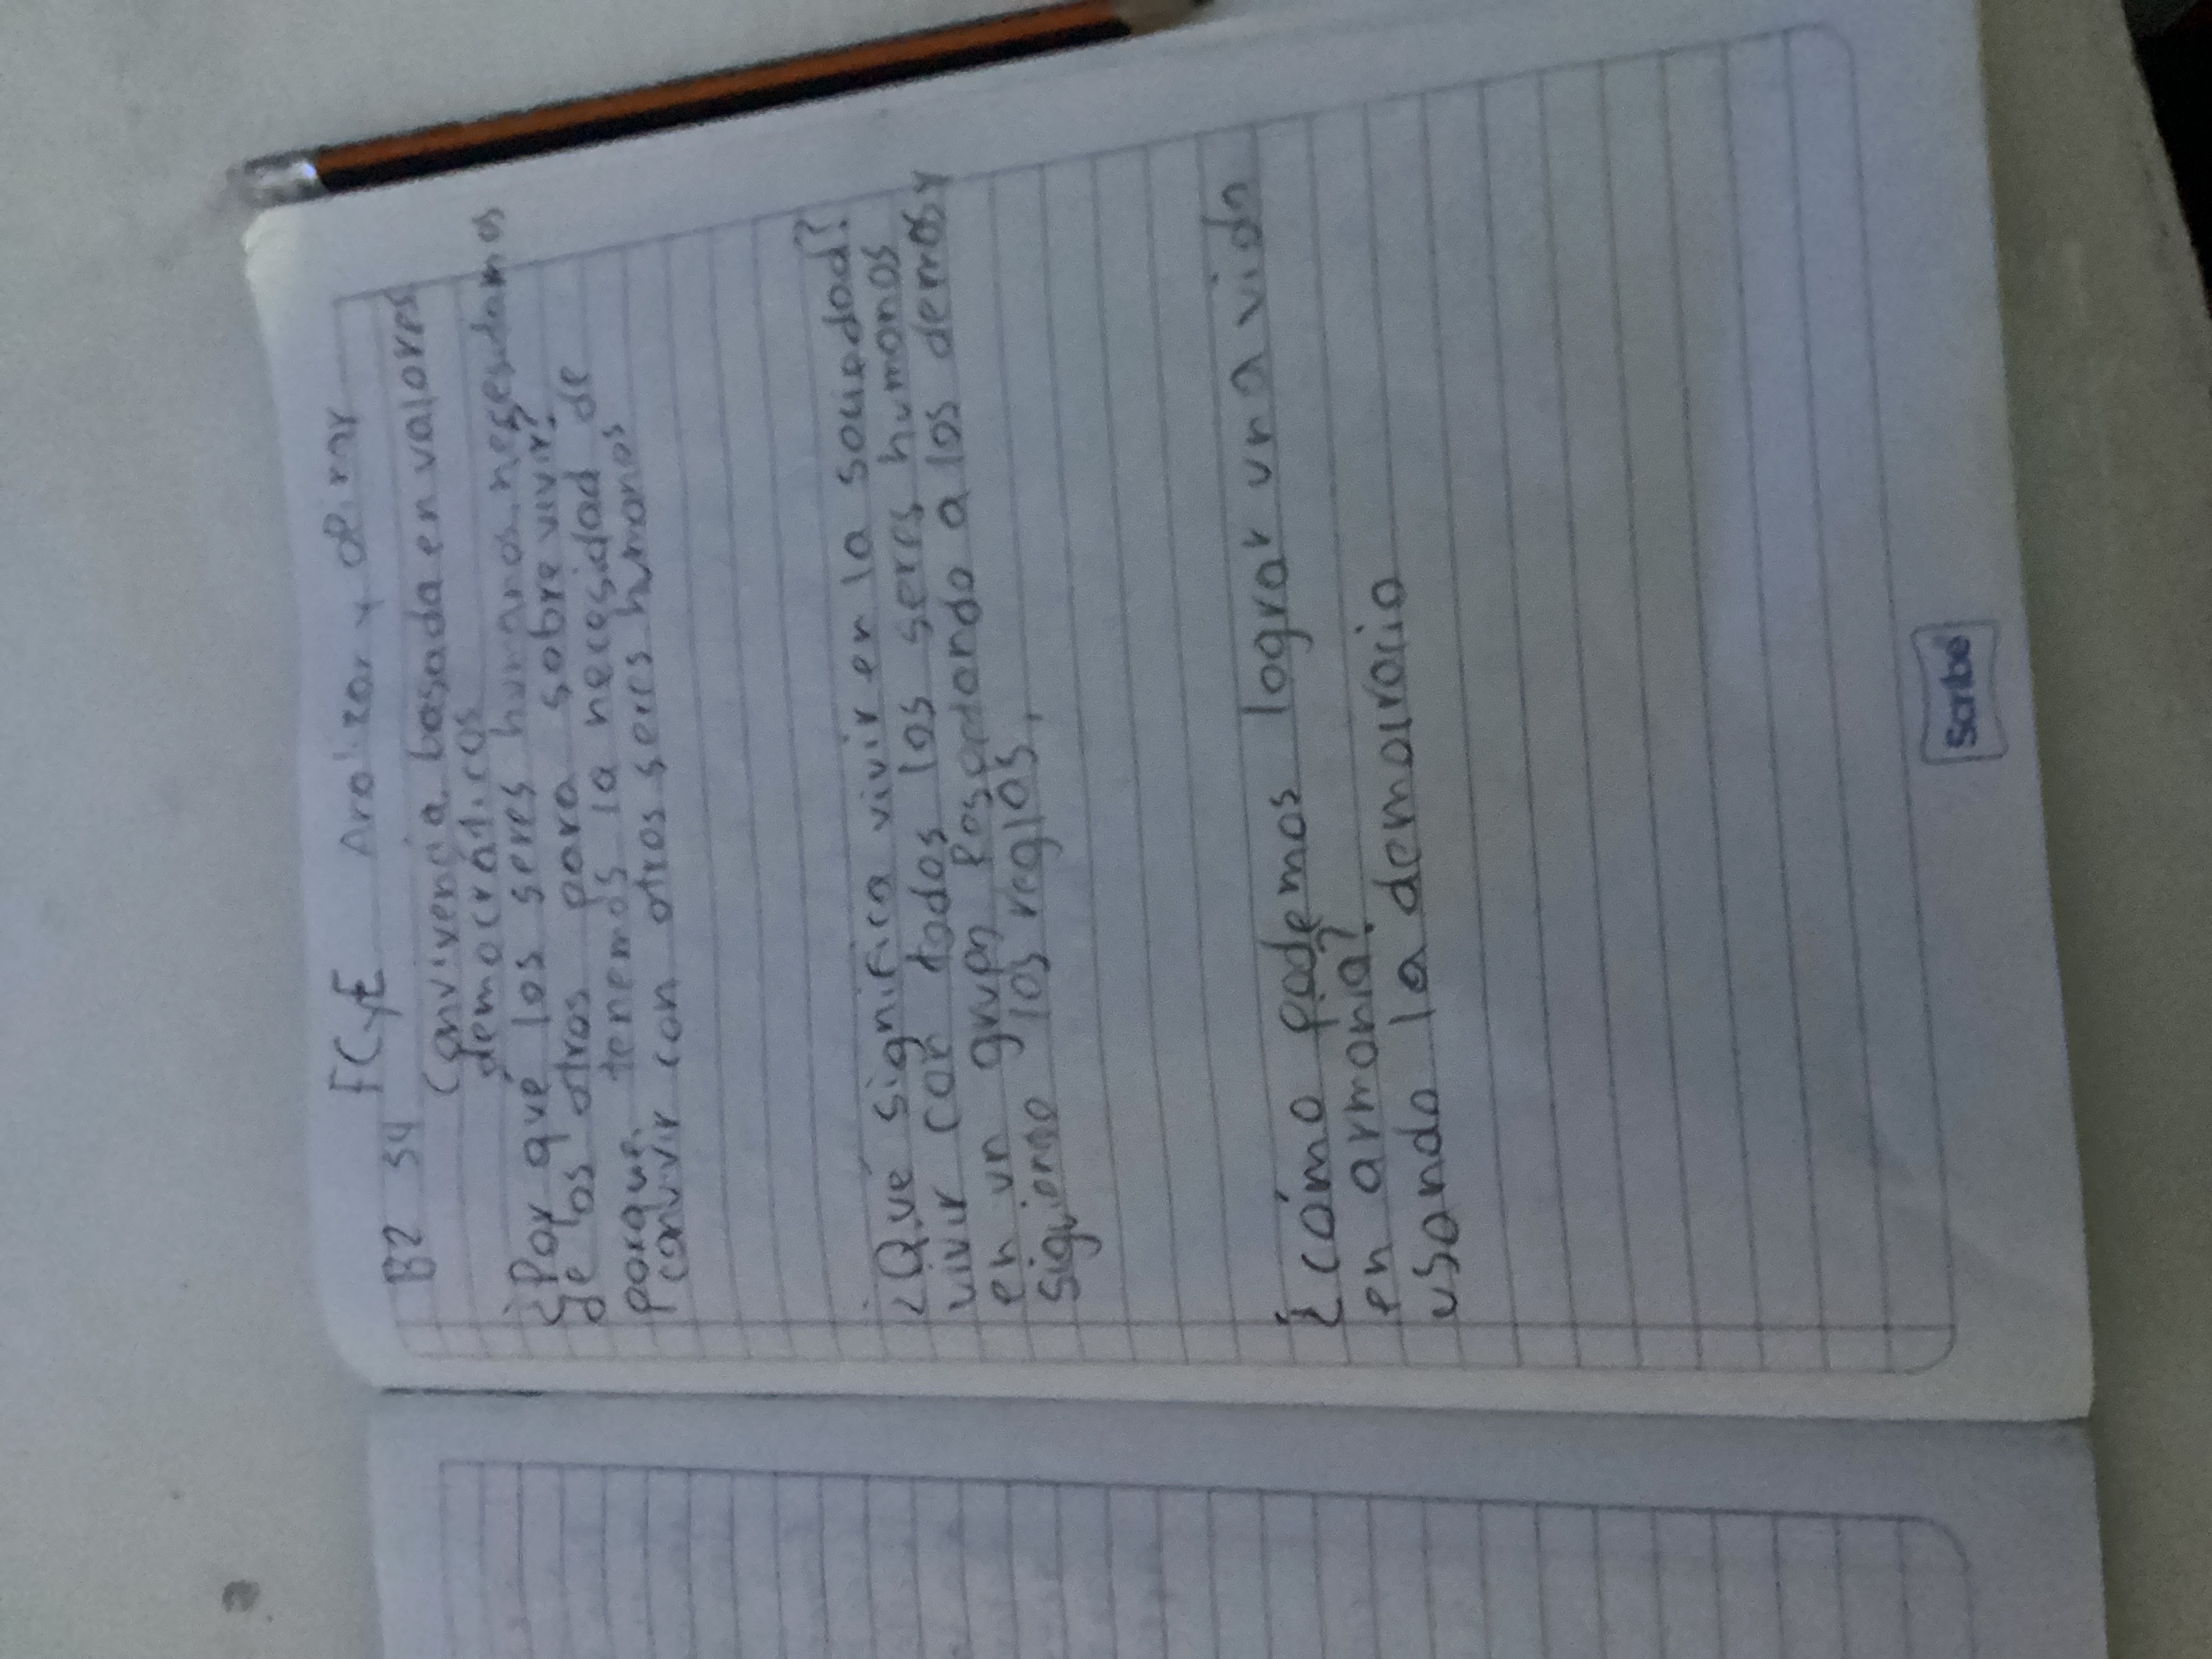 FCyE Analizar y opinar
B2 S4
Convivencia basada en valores
democráticos
¿Por qué los seres humanos nesesitamos
de los otros para sobre vivir?
porque tenemos la necesidad de
convivir con otros seres humanos
¿Qué significa vivir en la sociedad?
vivir con todos los seres humanos
en un grupo Posetando a los demás y
siguiendo las reglas,
¿cómo podemos lograr una vida
en armonía?
usando la democracia
Scribe